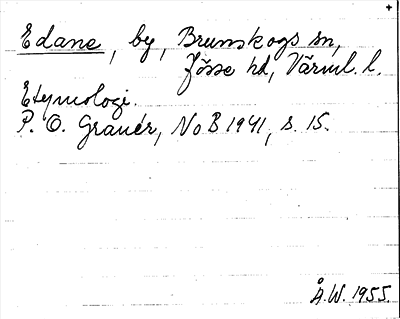 +
Edane, by, Brunskogs sn,
Jösse hd, Värml. l.
Etymologi.
P. O. Granér, NoB 1941, s. 15.
Å.W. 1955.